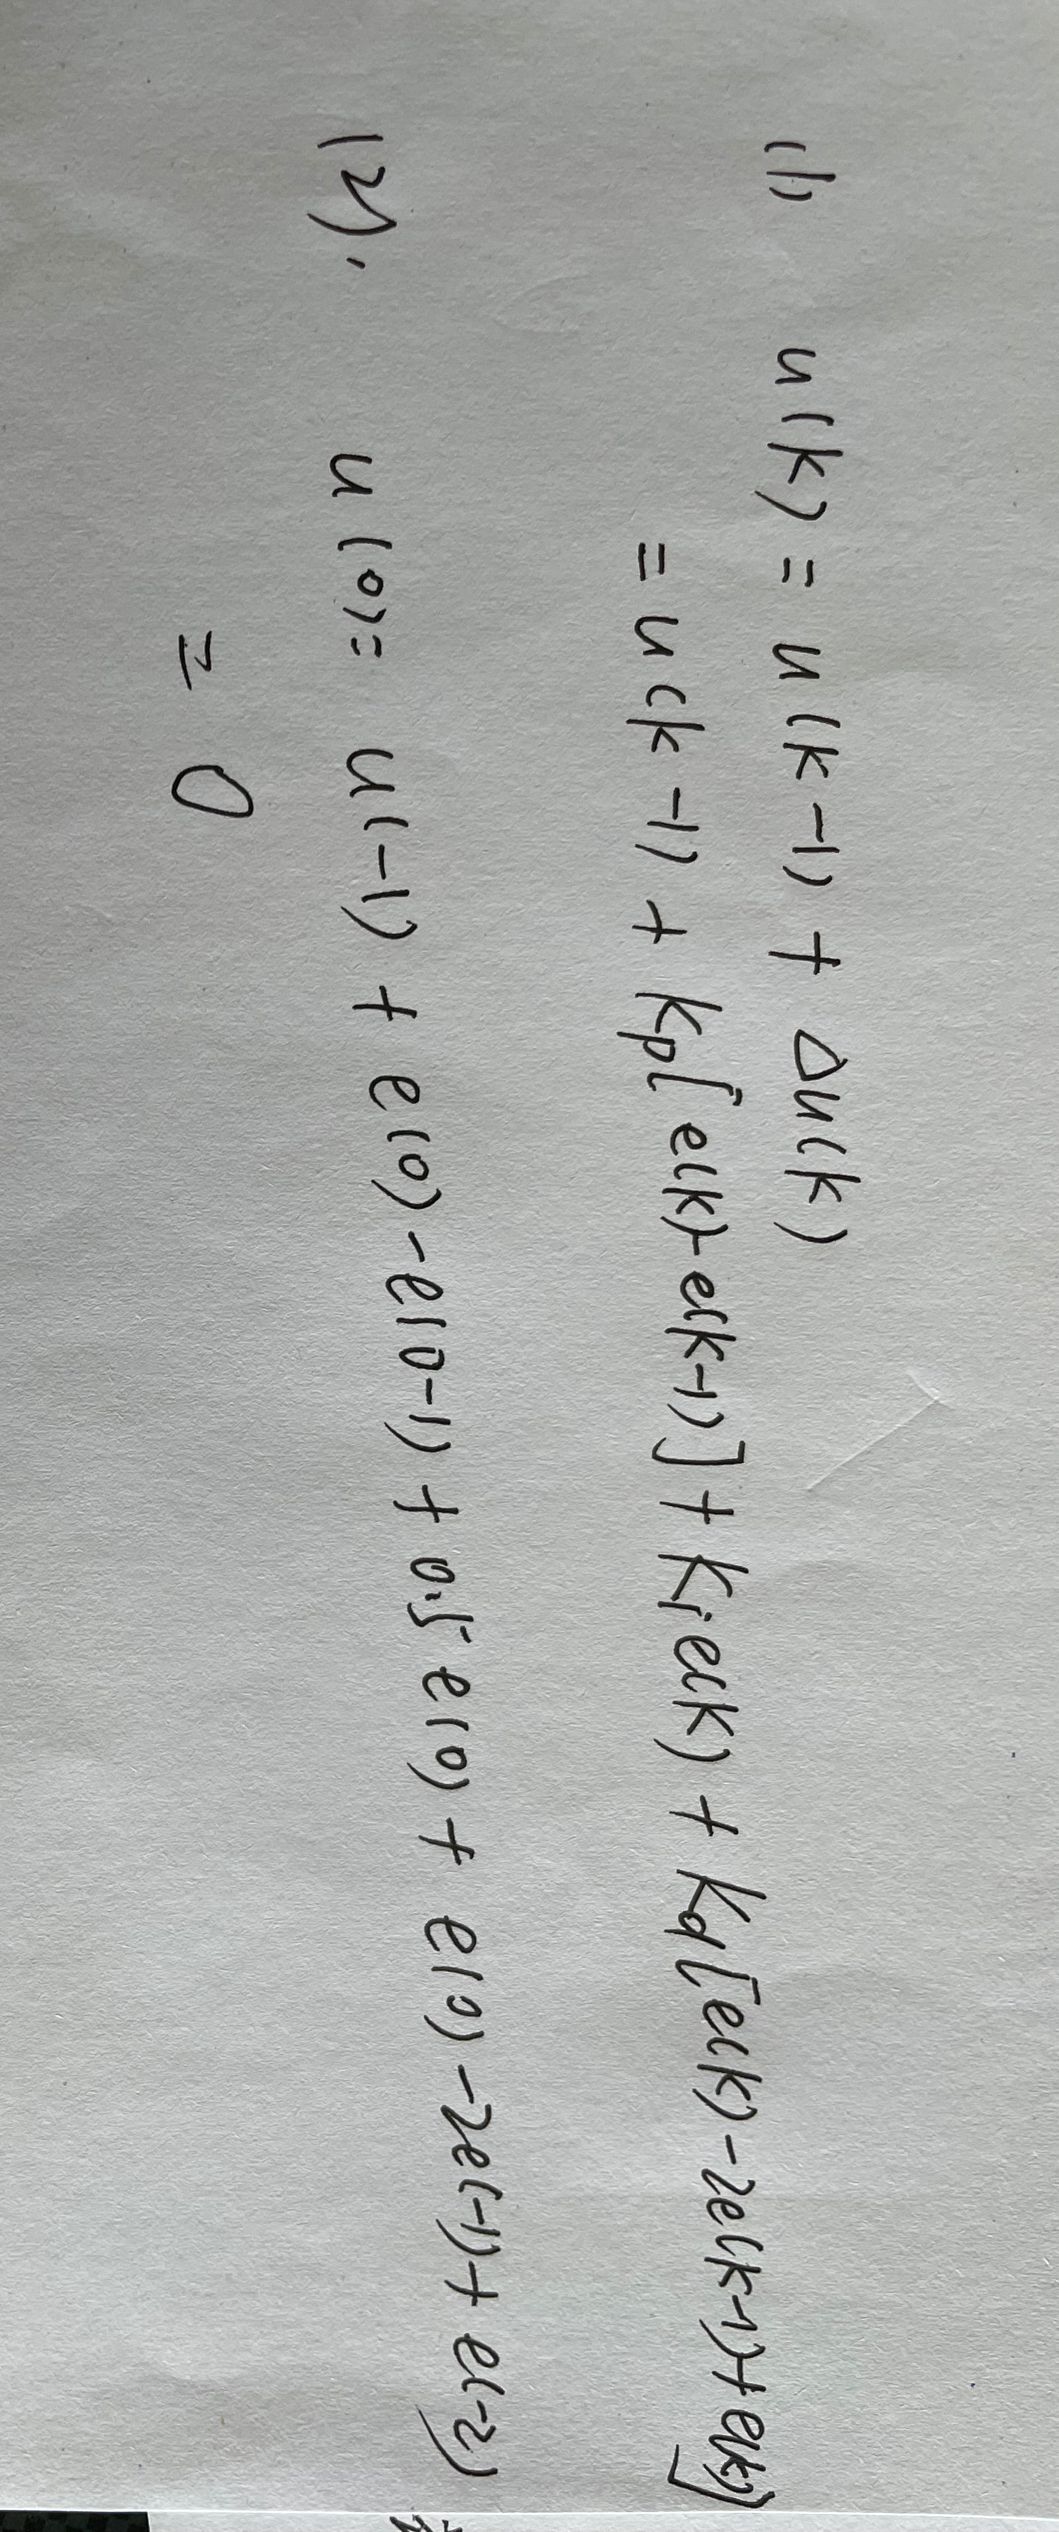 (1) u(k) = u(k-1) + Δu(k)
= u(k-1) + Kp[e(k)-e(k-1)] + Kie(k) + Kd[e(k)-2e(k-1)+e(k)]
(2). u(0)= u(-1) + e(0)-e(0-1) + 0.5e(0) + e(0)-2e(-1)+e(-2)
= 0